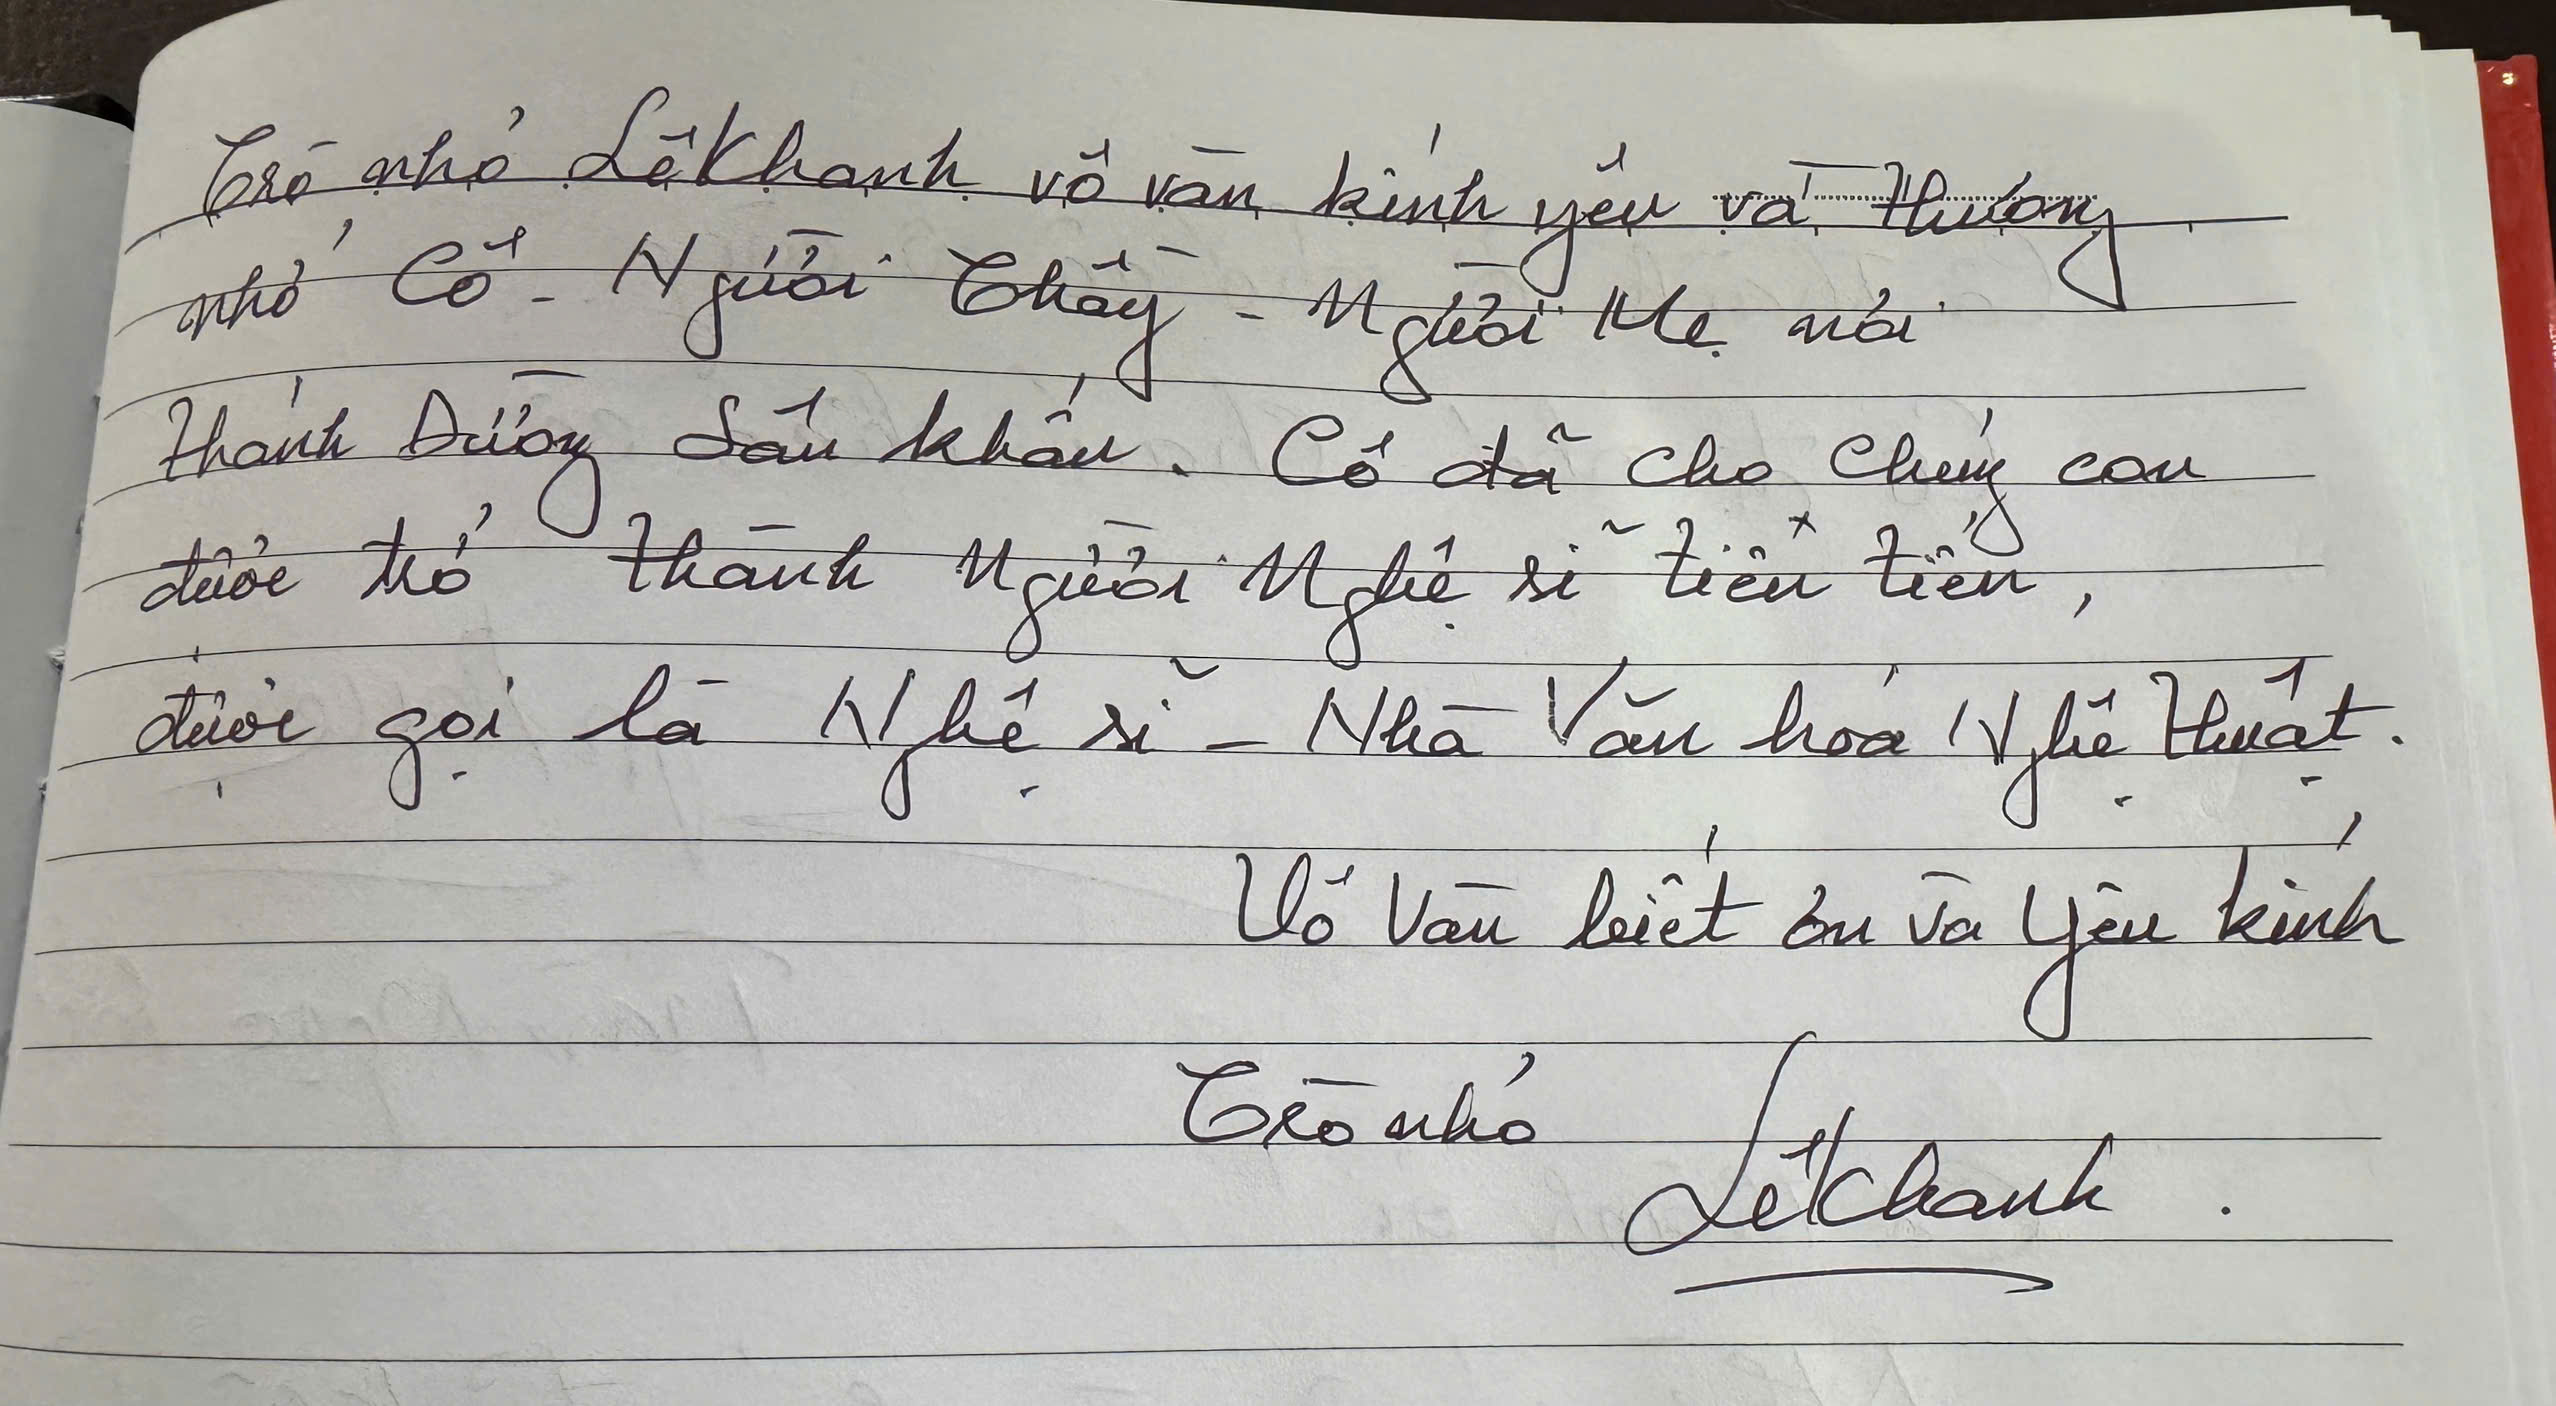 Trò nhỏ Lê Khanh vô vàn kính yêu và thương
nhớ Cô - Người Thầy - Người Mẹ nơi
Thánh Đường Sân khấu. Cô đã cho chúng con
được trở thành Người Nghệ sĩ tiên tiến,
được gọi là Nghệ sĩ - Nhà Văn hóa Nghệ Thuật.
Vô vàn biết ơn và yêu kính
Trò nhỏ
Lê Khanh.